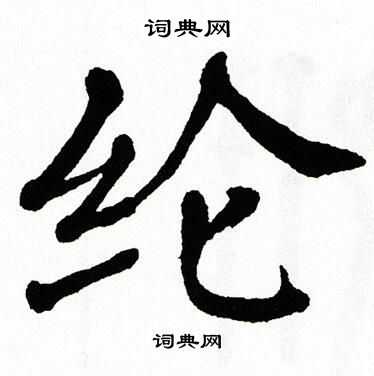 词典网
纶
词典网